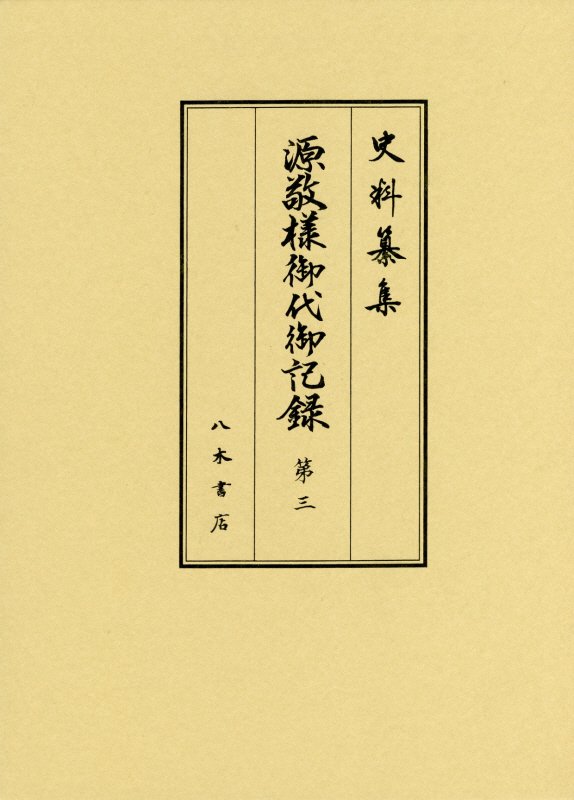 史料纂集
源敬様御代御記録 第三
八木書店